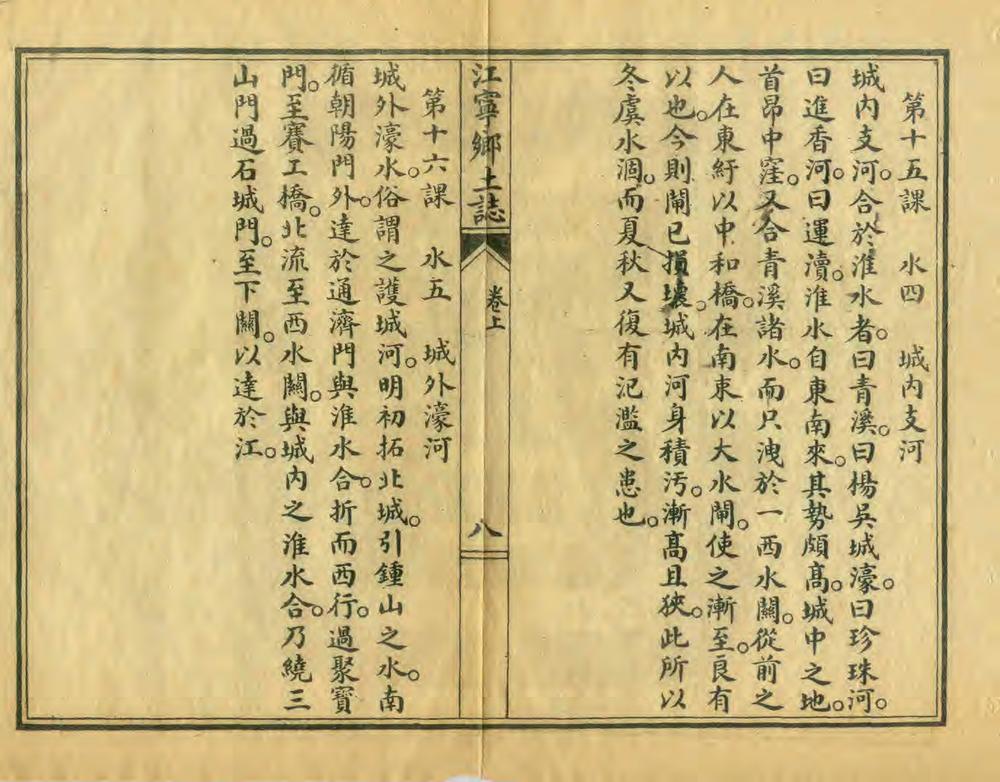 第十五課　水四　城內支河
城內支河。合於淮水者。曰青溪。曰楊吳城濠。曰珍珠河。
曰進香河。曰運瀆。淮水自東南來。其勢頗高。城中之地。
首昂中窪。又合青溪諸水。而只洩於一西水關。從前之
人在東紆以中和橋。在南束以大水閘。使之漸至。良有
以也。今則閘已損壞。城內河身積汚。漸高且狹。此所以
冬虞水涸。而夏秋又復有氾濫之患也。
江寧鄉土誌
卷上
八
第十六課　水五　城外濠河
城外濠水。俗謂之護城河。明初拓北城。引鍾山之水。南
循朝陽門外。達於通濟門與淮水合。折而西行。過聚寶
門。至賽工橋。北流至西水關。與城內之淮水合。乃繞三
山門過石城門。至下關。以達於江。